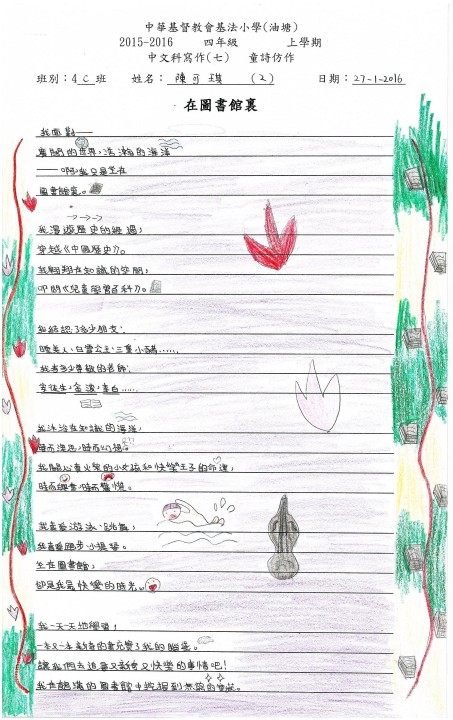 中華基督教會基法小學(油塘)
2015-2016 四年級 上學期
中文科寫作(七) 童詩仿作
班別：4C班 姓名：陳可琪 (2) 日期：27-1-2016
在圖書館裏
我面對——
廣闊的世界，浩瀚的海洋
——啊，我只是坐在
圖書館裏。
我漫遊歷史的，
穿越《中國歷史》。
我翱翔在知識的空間，
叩開《兒童學習百科》。
我結認了多少朋友：
睡美人、白雪公主、三隻小豬……
我有多少尊敬的老師：
安徒生、金波、李白……
我沐浴在知識的海洋，
時而沉思，時而幻想。
我關心賣火柴的小女孩和快樂王子的命運，
時而興奮，時而驚慌。
我喜愛游泳、跳舞，
我喜愛跑步、小提琴。
坐在圖書館，
卻是我最快樂的時光。
我一天一天地學習，
一本又一本新奇的書充實了我的腦袋。
讓我們去追尋又新奇又快樂的事情吧！
我在的圖書館中挖掘到無窮的寶藏。